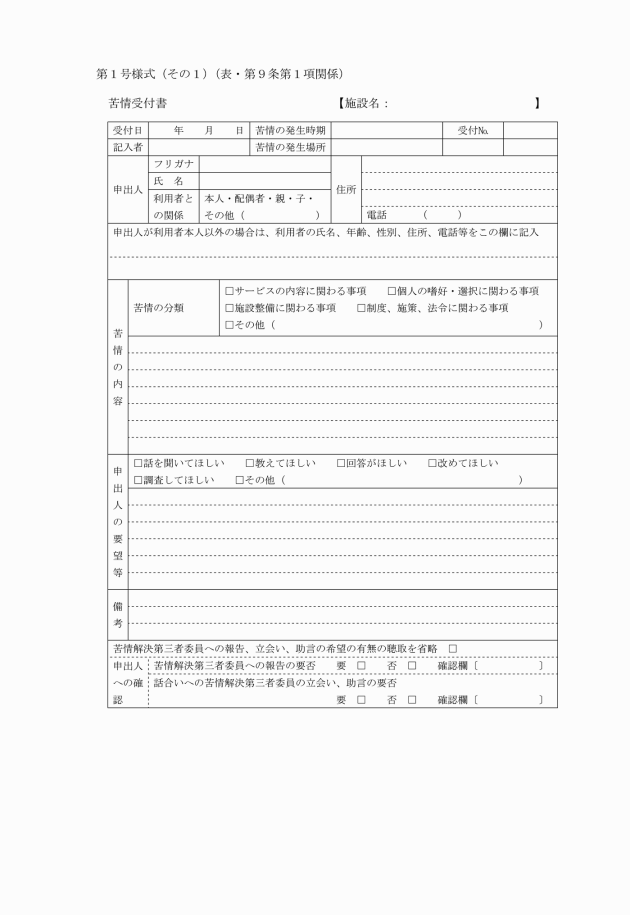 第１号様式（その１）（表・第９条第１項関係）
苦情受付書　【施設名：　】
受付日　年　月　日　苦情の発生時期　受付№
記入者　苦情の発生場所
申出人　フリガナ　住所
氏　名
利用者と　本人・配偶者・親・子・
の関係　その他（　）　電話　（　）
申出人が利用者本人以外の場合は、利用者の氏名、年齢、性別、住所、電話等をこの欄に記入
苦情の内容
苦情の分類
□サービスの内容に関わる事項　□個人の嗜好・選択に関わる事項
□施設整備に関わる事項　□制度、施策、法令に関わる事項
□その他（　）
申出人の要望等
□話を聞いてほしい　□教えてほしい　□回答がほしい　□改めてほしい
□調査してほしい　□その他（　）
備考
苦情解決第三者委員への報告、立会い、助言の希望の有無の聴取を省略　□
申出人への確認
苦情解決第三者委員への報告の要否　要　□　否　□　確認欄〔　〕
話合いへの苦情解決第三者委員の立会い、助言の要否
要　□　否　□　確認欄〔　〕